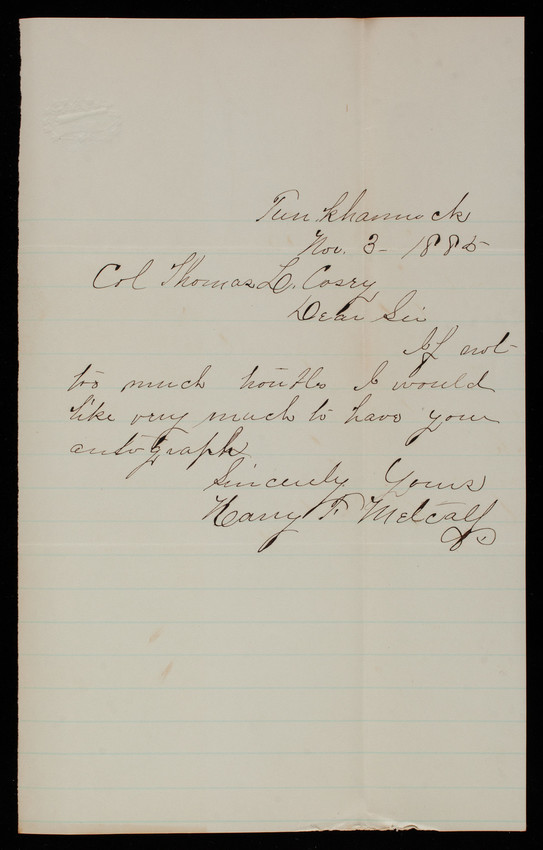 Tunkhannock
Nov. 3- 1885
Col Thomas L. Casey
Dear Sir
If not
too much trouble I would
like very much to have your
autograph
Sincerely Yours
Harry F. Metcalf